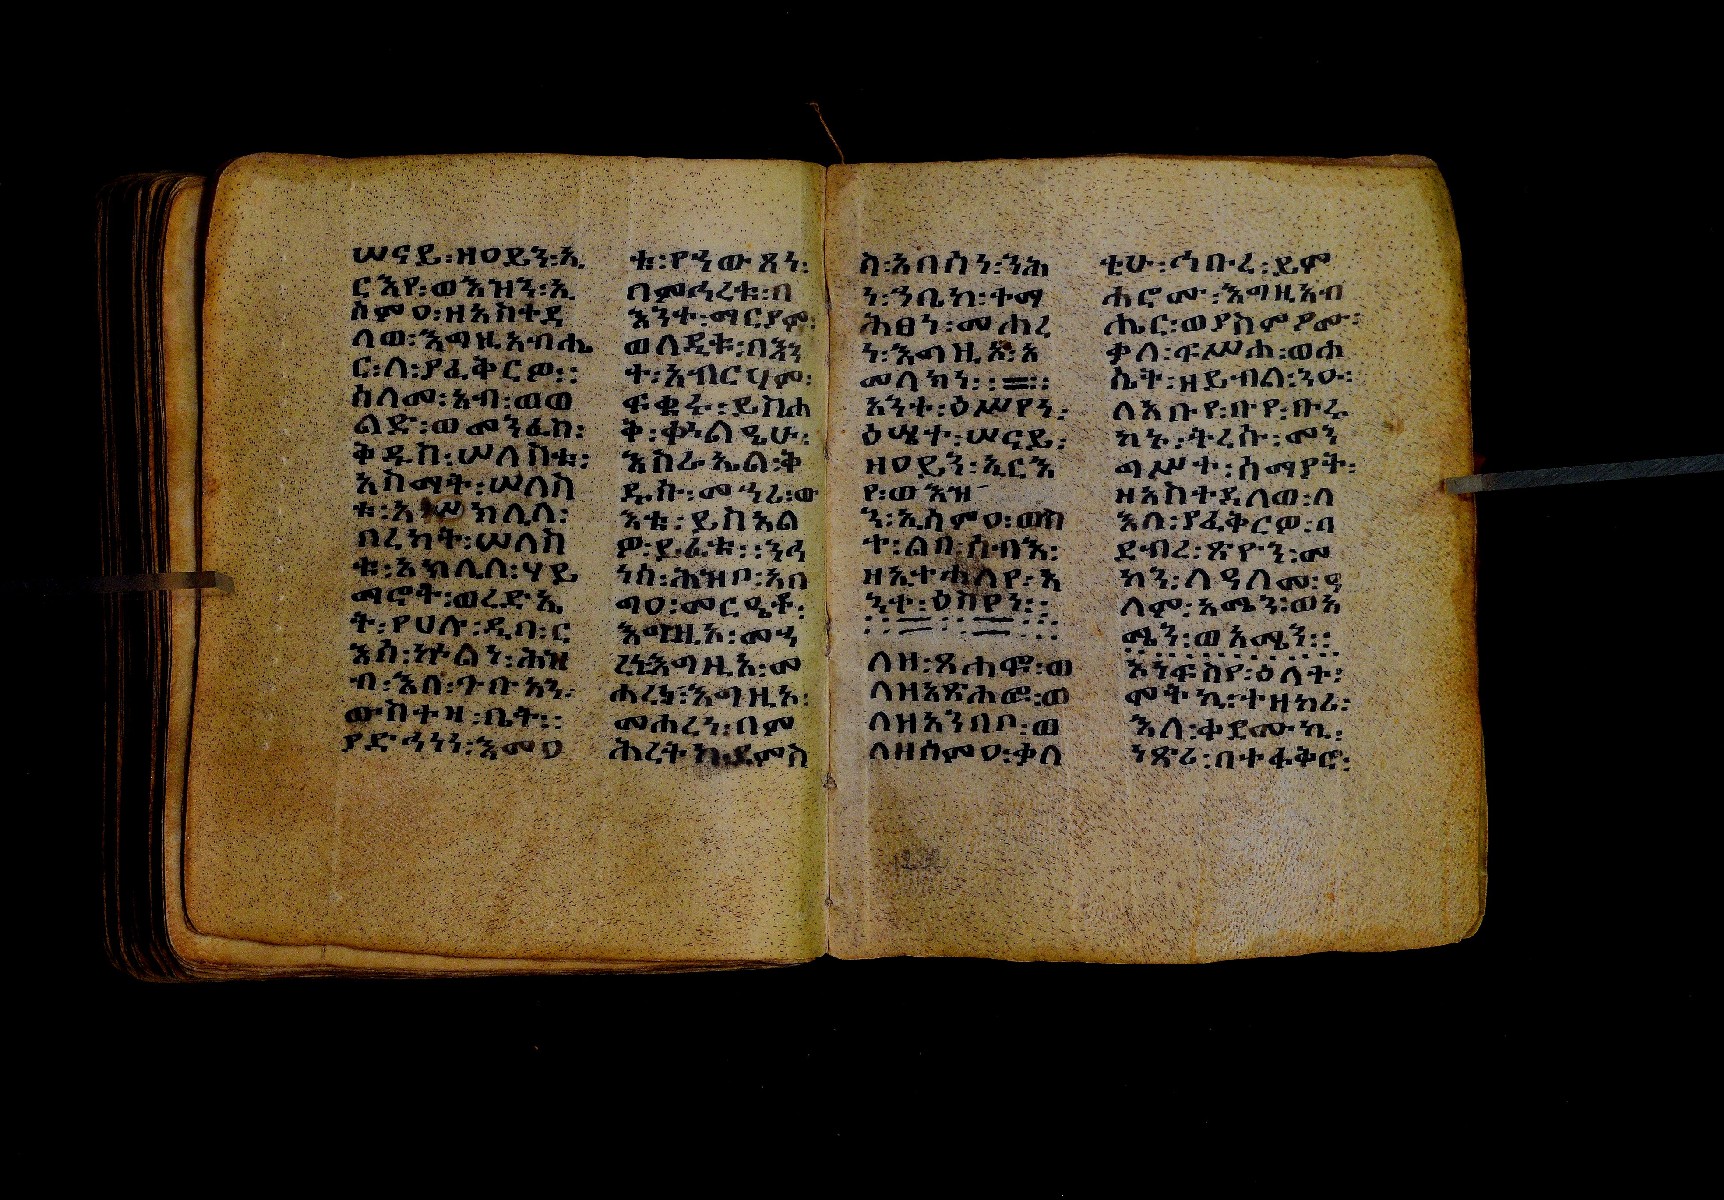 ሠናይ፡ዘዐይን፡ኢ
ርእየ፡ወእዝን፡ኢ
ሰምዐ፡ዘአስተዳ
ለወ፡እግዚአብሔ
ር፡ለ፡ያፈቅርዎ፡፡
ሰላመ፡አብ፡ወወ
ልድ፡ወመንፈስ፡
ቅዱስ፡ሠለስቱ፡
አስማት፡ሠለስ
ቱ፡አ
በረከት፡ሠለስ
ቱ፡አክሊለ፡ሃይ
ማኖት፡ወረድኤ
ት፡የሀሉ፡ዲበ፡ር
እሰ፡ኵልነ፡ሕዝ
ብ፡እለ፡ጉቡአን፡
ውስተዛ፡ቤት፡፡
ያድኅነነ፡እመዐ
ቱ፡የኀውጸነ፡
በምሕረቱ፡በ
እንተ፡ማርያም፡
ወላዲቱ፡በእን
ተ፡አብርሃም፡
ፍቁሩ፡ይስሐ
ቅ፡ቀኑልዒሁ፡
እስራኤል፡ቅ
ዱሱ፡መኀሪ፡ው
እቱ፡ይስእል
ዎ፡ይፈቱ፡፡ንዳ
ነሰ፡ሕዝቦ፡አባ
ግዐ፡መርዔቱ፡
እግዚኦ፡መኀ
ረነ፡እግዚኦ፡መ
ሐረነ፡እግዚኦ፡
መሐረነ፡በም
ሕረትከ፡ደምስ
ስ፡አበሳነ፡ንሕ
ነ፡ኀቤከ፡ተማ
ሕፀነ፡መሐረ
ነ፡እግዚኦ፡አ
መላክነ፡፡
አንተ፡ዕሥየነ፡
ዕሤተ፡ሠናይ፡
ዘዐይን፡ኢርእ
የ፡ወእዝ
ን፡ኢሰምዐ፡ወስ
ተ፡ልበ፡ሰብእ፡
ዘኢተሐለየ፡አ
ንተ፡ዕስየነ፡፡
ለዘ፡ጸሐፎ፡ወ
ለዘአጽሐፎ፡ወ
ለዘአንበቦ፡ወ
ለዘሰምዐ፡ቃለ
ቲሁ፡ኅቡረ፡ይም
ሐሮሙ፡እግዚአብ
ሔር፡ወያስምዖሙ፡
ቃለ፡ፍሥሐ፡ወሐ
ሴት፡ዘይብል፡ንዑ፡
ለአቡየ፡ቡየ፡ቡሩ
ካኑ፡ትረሱ፡መን
ግሥተ፡ሰማያት፡
ዘአስተዳለወ፡ለ
እለ፡ያፈቅርዎ፡በ
ደብረ፡ጽዮን፡መ
ካን፡ለዓለመ፡ዓ
ለም፡አሜን፡ወአ
ሜን፡ወአሜን፡፡
እንፍስየ፡ዕለት፡
መትኪ፡ተዘከሪ፡
እለ፡ቀደሙኪ፡
ነጽሪ፡በተፋቅሮ፡